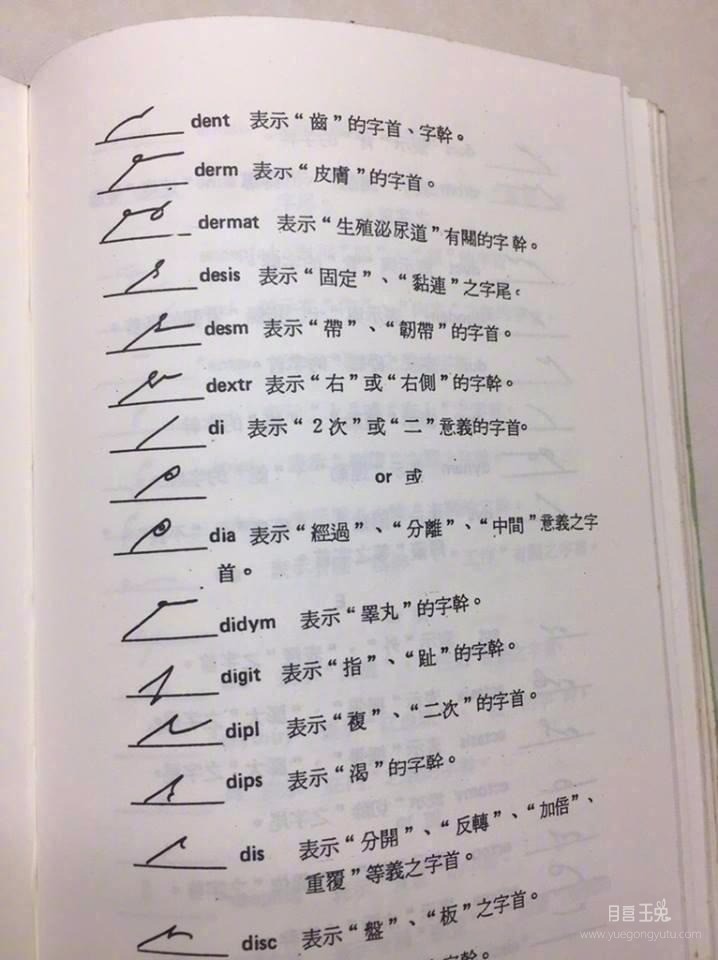 dent 表示“齒”的字首、字幹。
derm 表示“皮膚”的字首。
dermat 表示“生殖泌尿道”有關的字幹。
desis 表示“固定”、“黏連”之字尾。
desm 表示“帶”、“韌帶”的字首。
dextr 表示“右”或“右側”的字幹。
di 表示“2次”或“二”意義的字首。
or 或
dia 表示“經過”、“分離”、“中間”意義之字
首。
didym 表示“睪丸”的字幹。
digit 表示“指”、“趾”的字幹。
dipl 表示“複”、“二次”的字首。
dips 表示“渴”的字幹。
dis 表示“分開”、“反轉”、“加倍”、
重覆”等義之字首。
disc 表示“盤”、“板”之字首。
字幹。
月宮玉兔
www.yuegongyutu.com